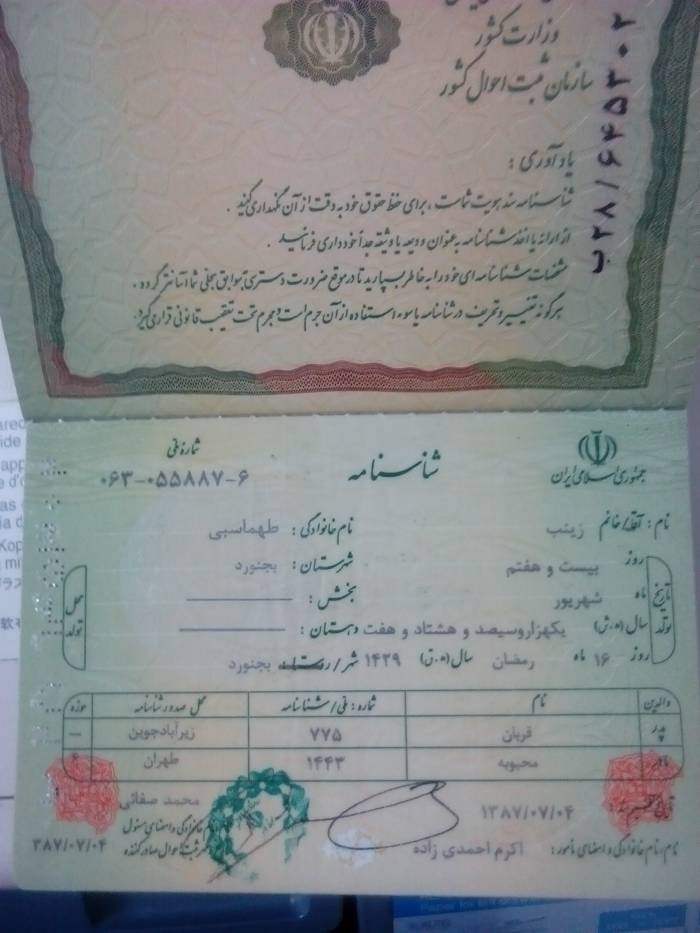 وزارت کشور
سازمان ثبت احوال کشور
ب۲۸/۶۴۵۳۰۲
یادآوری :
شناسنامه سند هویت شماست ، برای حفظ حقوق خود به دقت از آن نگهداری کنید .
از ارائه یا اخذ شناسنامه به عنوان ودیعه یا وثیقه جداً خودداری فرمائید .
مشخصات شناسنامه ای خود را به خاطر بسپارید تا در موقع ضرورت دسترسی به سوابق سجلی شما آسانتر گردد .
هرگونه تغییر و تحریف در شناسنامه یا سوء استفاده از آن جرم است و مجرم تحت تعقیب قانونی قرار می گیرد.
جمهوری اسلامی ایران
شناسنامه
شماره ملی
۰۶۳-۰۵۵۸۸۷-۶
نام : آقا/خانم زینب
نام خانوادگی : طهماسبی
تاریخ تولد
روز بیست و هفتم
ماه شهریور
سال (ه.ش) یکهزاروسیصد و هشتاد و هفت
روز ۱۶ ماه رمضان سال (ه.ق) ۱۴۲۹
محل تولد
شهرستان : بجنورد
بخش :
دهستان :
شهر / روستا : بجنورد
والدین نام شماره : ملی / شناسنامه محل صدور شناسنامه حوزه
پدر قربان ۷۷۵ زیرآبادجوین —
مادر محبوبه ۱۴۴۳ طهران
تاریخ تنظیم سند : ۱۳۸۷/۰۷/۰۴
محمد صفائی
نام، نام خانوادگی و امضای مأمور : اکرم احمدی زاده
نام خانوادگی و امضای مسئول
مهر ثبت احوال صادر کننده
۳۸۷/۰۷/۰۴